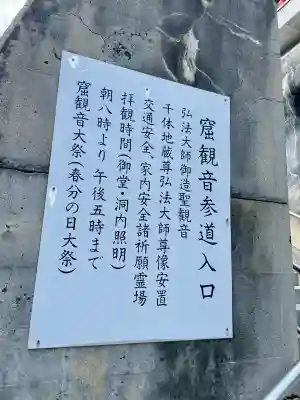 窟観音参道入口
弘法大師御造聖観音
千体地蔵尊弘法大師尊像安置
交通安全、家内安全諸祈願霊場
拝観時間(御堂・洞内照明)
朝八時より午後五時まで
窟観音大祭(春分の日大祭)